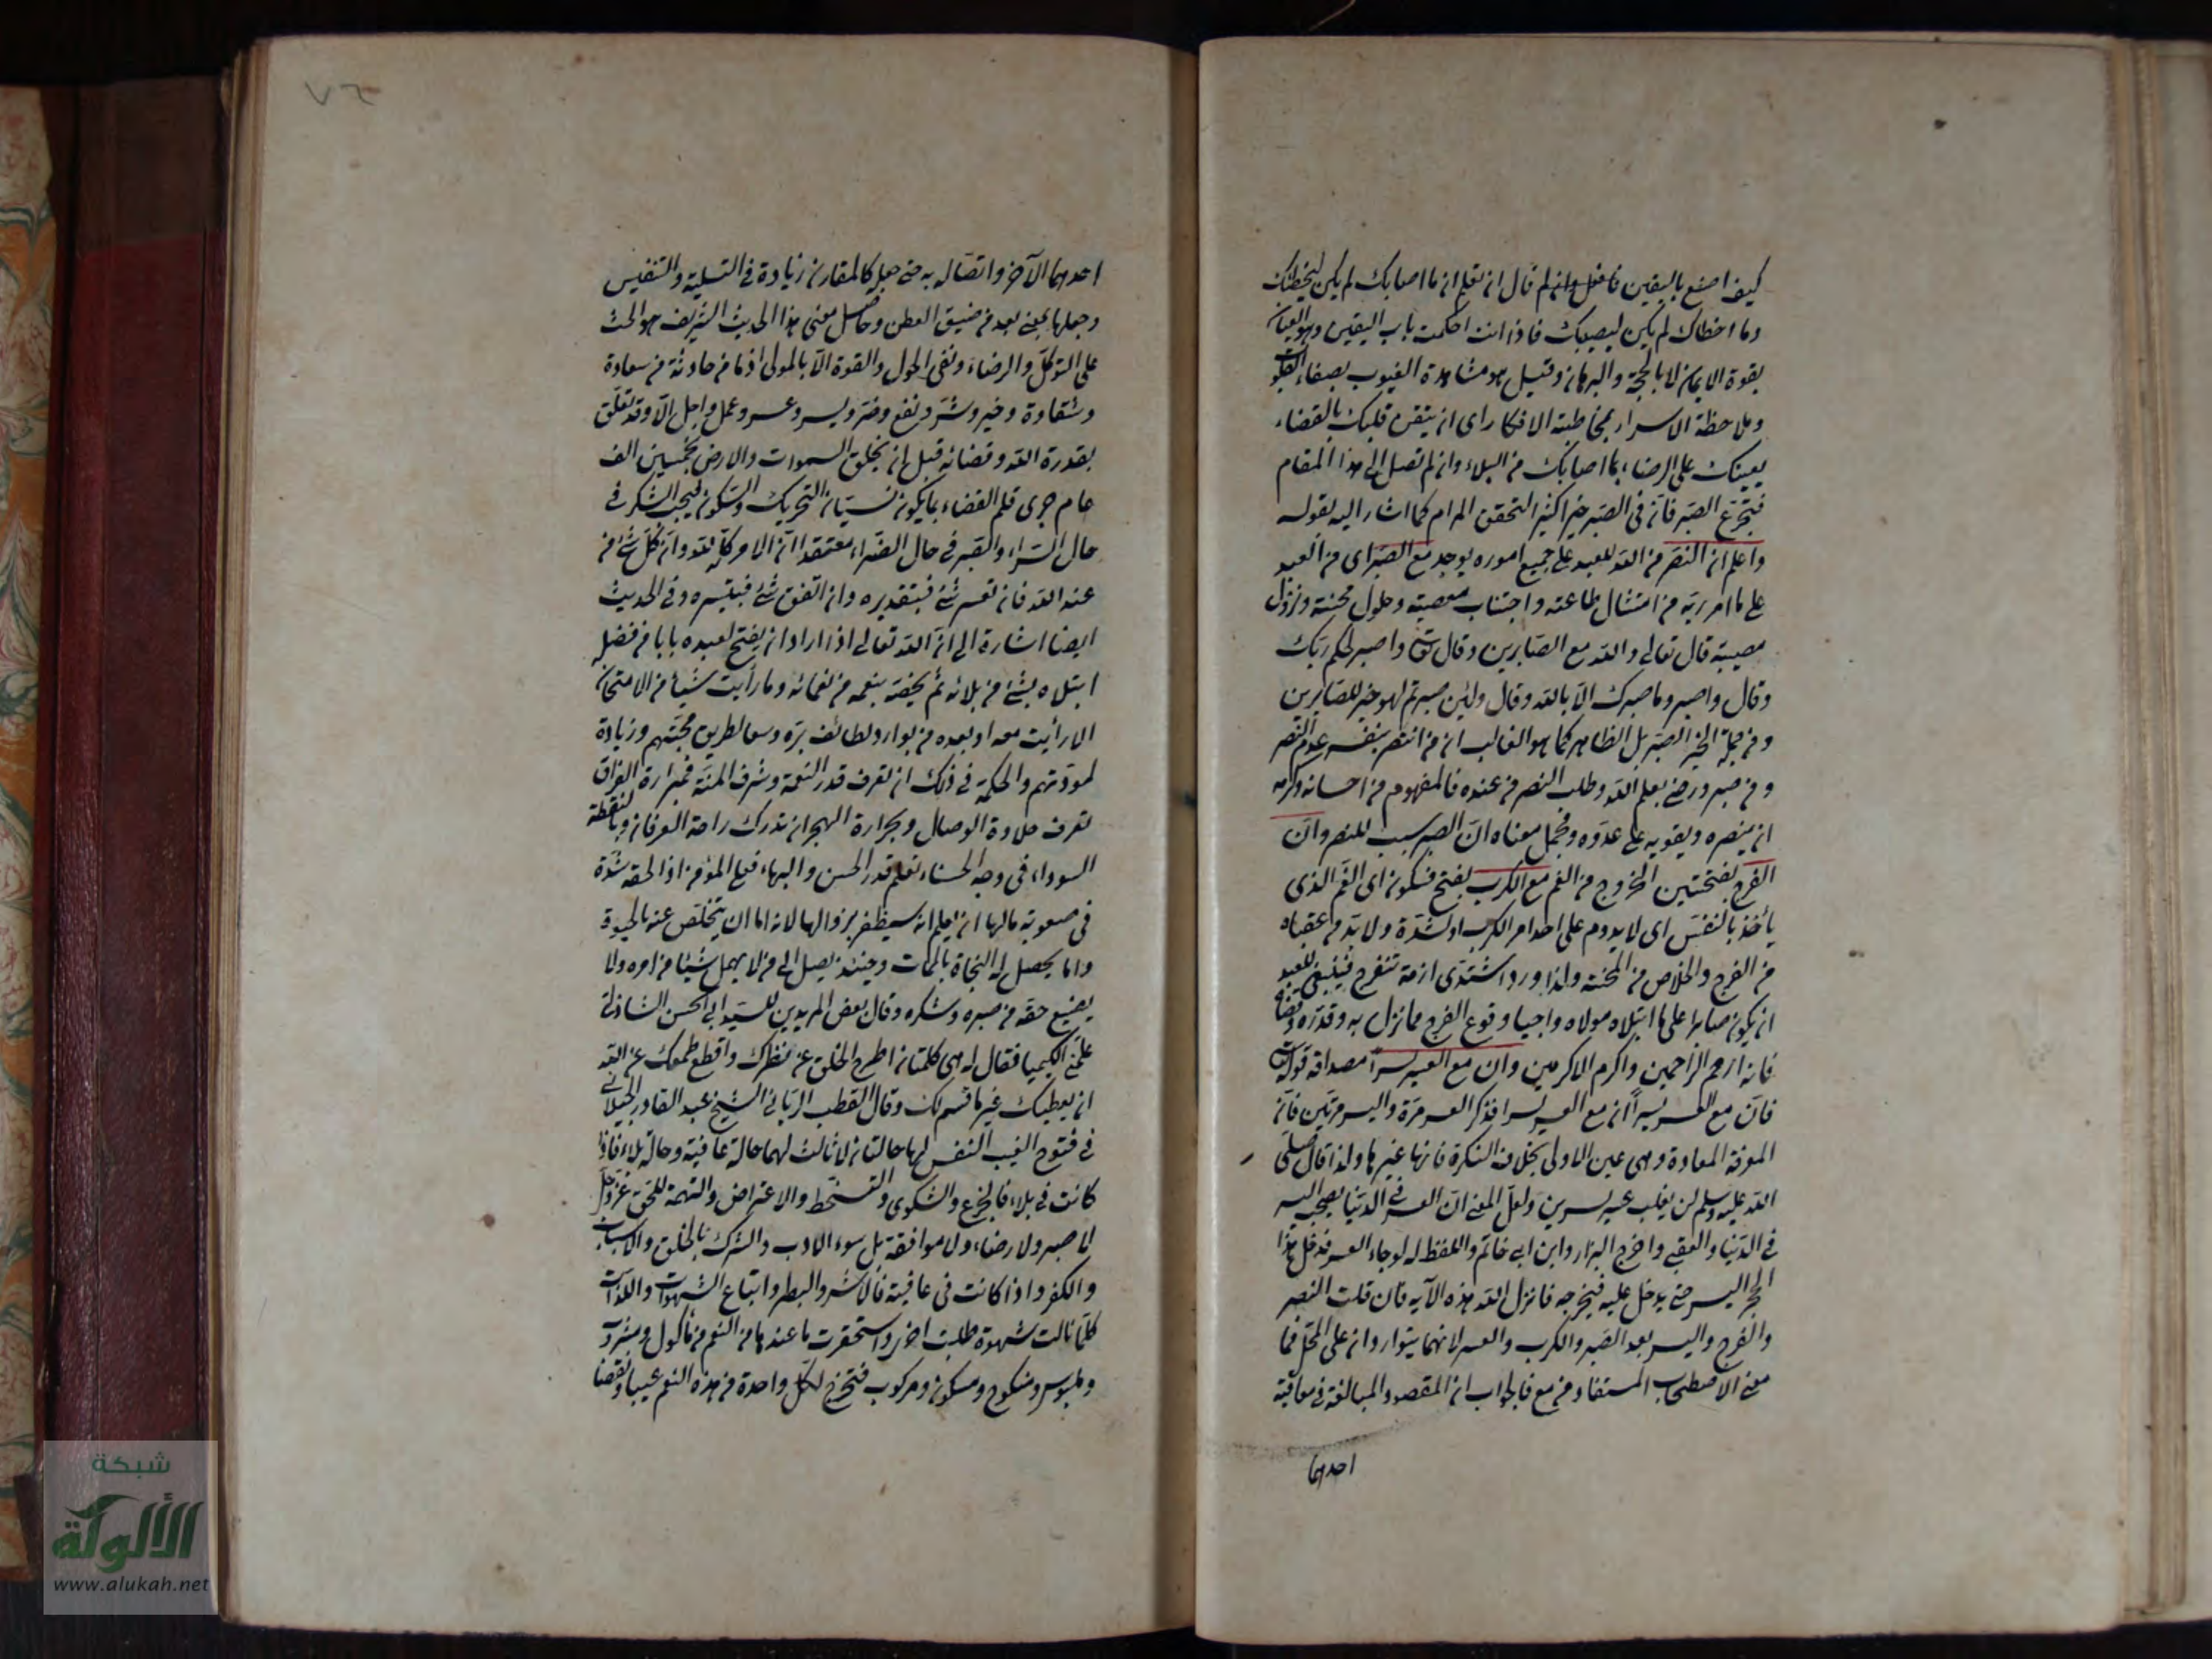 كيف اصنع باليقين فافعل وان لم قال ان تعلم ان ما اصابك لم يكن ليخطئك
وما اخطاك لم يكن ليصيبك فاذا انت احكمت باب اليقين وهو العيان
بقوة الايمان لا بالحجة والبرهان وقيل هو مشاهدة الغيوب بصفاء القلوب
وملاحظة الاسرار بمخاطبة الافكار اى ان يتقن قلبك بالقضاء
يعينك على الرضاء بما اصابك من البلاء وان لم تصل الى هذا المقام
فتجرع الصبر فان فى الصبر خيرا كثيرا لتحقق المرام كما اشار اليه بقوله
واعلم ان النصر من الله للعبد على جميع اموره يوجد مع الصبر اى من العبد
على ما امر ربه من امتثال طاعته واجتناب معصيته وحلول محنته ونزول
مصيبة قال تعالى والله مع الصابرين وقال تعالى واصبر لحكم ربك
وقال واصبر وما صبرك الا بالله وقال ولئن صبرتم لهو خير للصابرين
ومن جملة الخير الصبر بل الظاهر كما هو الغالب ان من انتصر بنفسه عدم النصر
ومن صبر ورضى بعلم الله وطلب النصر من عنده فالمفهوم من احسانه وكرمه
ان ينصره ويقويه على عدوه ومجمل معناه ان الصبر سبب للنصر وان
الفرج بفتحتين الخروج من الغم مع الكرب بفتح فسكون اى الغم الذى
يأخذ بالنفس اى لا يدوم على احد امر الكرب والشدة ولا بد من عقباه
من الفرج والخلاص من المحنة ولذا ورد اشتدى ازمة تنفرج فينبغى للعبد
ان يكون صابرا على ما ابتلاه مولاه واجيا وقوع الفرج مما نزل به وقدره وقضاه
فانه ارحم الراحمين واكرم الاكرمين وان مع العسر يسرا مصداقه قوله تعالى
فان مع العسر يسرا ان مع العسر يسرا فذكر العسر مرة واليسر مرتين فان
المعرفة المعادة هى عين الاولى بخلاف النكرة فانها غيرها ولذا قال صلى
الله عليه وسلم لن يغلب عسر يسرين ولعل المعنى ان العسر فى الدنيا يصحبه اليسر
فى الدنيا والعقبى واخرج البزار وابن ابى حاتم واللفظ له لو جاء العسر فدخل هذا
الجحر اليسر حتى يدخل عليه فيخرجه فانزل الله هذه الآية فان قلت النصر
والفرج واليسر بعد الصبر والكرب والعسر لانهما يتواردان على المحل فما
معنى الاصطحاب المستفاد من مع فالجواب ان المقصود المبالغة فى معاقبة
احدهما
٧٦
احدهما الآخر واتصاله به حتى جعل كالمقارن زيادة فى التسلية والتنفيس
وجعلها بمعنى بعد من ضيق العطن وحاصل معنى هذا الحديث الشريف هو الحث
على التوكل والرضاء ونفى الحول والقوة الا بالمولى اذ ما من حادثة من سعادة
وشقاوة وخير وشر ونفع وضر ويسر وعسر وعمل واجل الا وقد تعلق
بقدرة الله وقضائه قبل ان يخلق السموات والارض بخمسين الف
عام جرى قلم القضاء بما يكون فسيان التحريك والسكون فيجب الشكر فى
حال السراء والصبر فى حال الضراء معتقدا ان الامر كله لله وان كل شئ من
عند الله فان تعسر شئ فبتقديره وان اتفق شئ فبتيسيره وفى الحديث
ايضا اشارة الى ان الله تعالى اذا اراد ان يفتح لعبده بابا من فضله
ابتلاه بشئ من بلائه ثم يخصه بنعمه من نعمائه وما رأيت شيأ من الامتحان
الا رأيت معه او بعده من بوارد لطائف بره وسعا لطريق محبتهم وزيادة
لمودتهم والحكمة فى ذلك ان تعرف قدر النعمة وشرف المنة فبمرارة الفراق
تعرف حلاوة الوصال وبحرارة الهجران تدرك راحة العرفان وبالنقطة
السوداء فى وجه الحسناء تعلم قدر الحسن والبهاء فعلى المؤمن اذا لحقه شدة
فى صعوبة مالها ان يعلم انه سيظفر بزوالها لانه اما ان يتخلص عنه بالحيوة
واما يحصل له النجاة بالممات وحينئذ يصل الى من لا يهمل شيئا من امره ولا
يضيع حقه من صبره وشكره وقال بعض المريدين للسيد ابى الحسن الشاذلى
علمنى الكيميا فقال له هى كلمتان اطرح الخلق عن نظرك واقطع طمعك عن الله
ان يعطيك غير ما قسم لك وقال القطب الربانى الشيخ عبد القادر الجيلانى
فى فتوح الغيب النفس لها حالتان لا ثالث لهما حالة عافية وحالة بلاء فاذا
كانت فى بلاء فالجزع والشكوى والتسخط والاعتراض والتهمة للحق عز وجل
لا صبر ولا رضاء ولا موافقة بل سوء الادب والشرك بالخلق والاسباب
والكفر واذا كانت فى عافية فالاشر والبطر واتباع الشهوات واللذات
كلما نالت شهوة طلبت اخرى واستحقرت ما عندها من النعم من مأكول ومشروب
وملبوس ومنكوح ومسكون ومركوب فتخرج لكل واحدة من هذه النعم عيبا ونقصا
شبكة
الألوكة
www.alukah.net